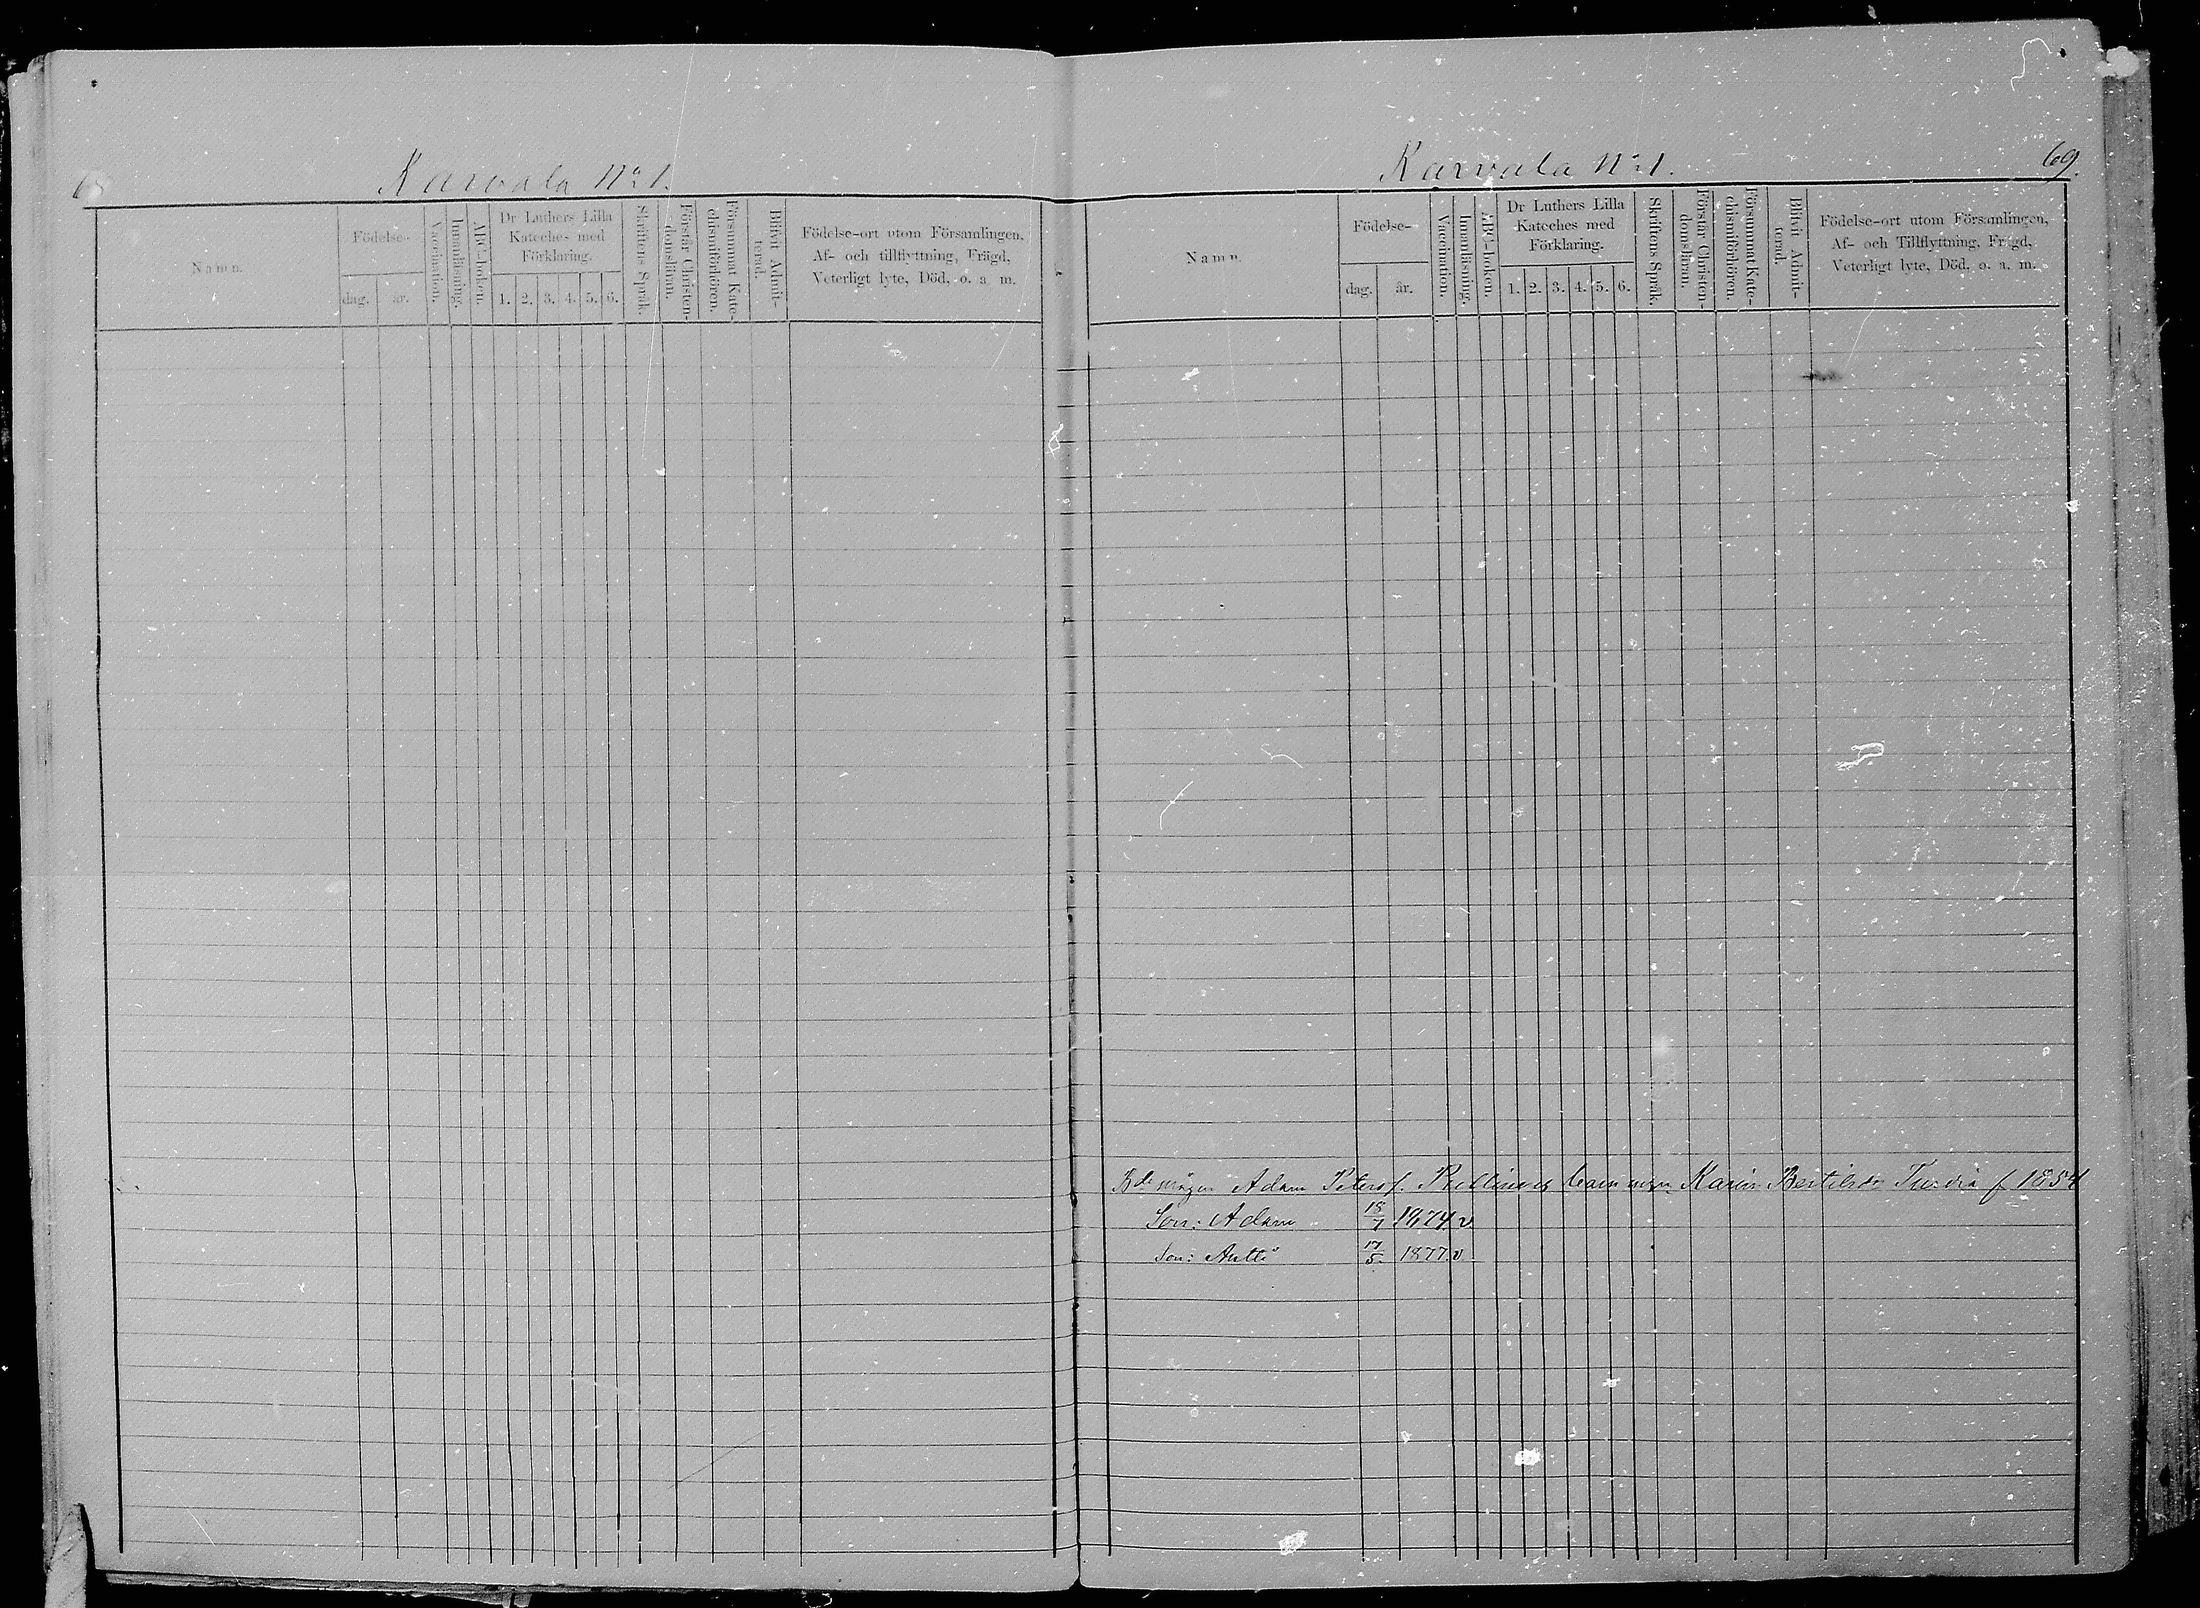 Karvala No 1.
Namn.
Födelse-
dag.
år.
Vaccination.
Innanläsning.
ABC-boken.
Dr Luthers Lilla
Kateches med
Förklaring.
1. 2. 3. 4. 5. 6.
Skriftens Språk.
Förstår Christen-
domsläran.
Försummat Kate-
chismiförhören.
Blifvit Admit-
terad.
Födelse-ort utom Församlingen,
Af- och tillflyttning, Frägd,
Veterligt lyte, Död, o. a. m.
Karvala No 1.
69.
Namn.
Födelse-
dag.
år.
Vaccination.
Innanläsning.
ABC-boken.
Dr Luthers Lilla
Kateches med
Förklaring.
1. 2. 3. 4. 5. 6.
Skriftens Språk.
Förstår Christen-
domsläran.
Försummat Kate-
chismiförhören.
Blifvit Admit-
terad.
Födelse-ort utom Församlingen,
Af- och Tillflyttning, Frägd,
Veterligt lyte, Död, o. a. m.
Adam Karin f 1854
Son: Adam 18/7 1874 v
Son: Antti 17/5. 1877. v